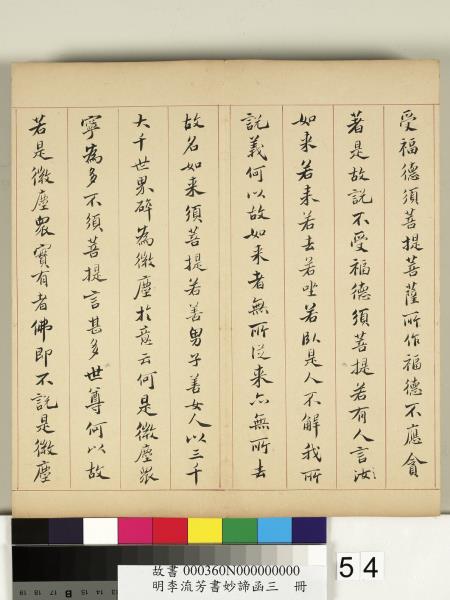 受福德須菩提菩薩所作福德不應貪
著是故說不受福德須菩提若有人言
如来若来若去若坐若臥是人不解我所
說義何以故如来者無所従来亦無所去
故名如来須菩提若善男子善女人以三千
大千世界碎為微塵於意云何是微塵衆
寧為多不須菩提言甚多世尊何以故
若是微塵衆實有者佛即不說是微塵
54
故書 000360N000000000
明李流芳書妙諦函三 冊